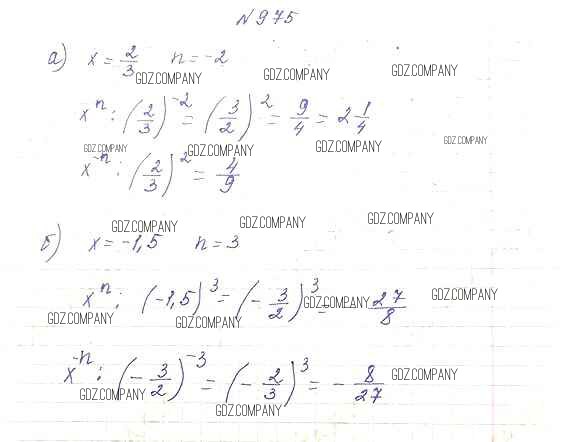 №975
а) x = 2/3 n = -2
GDZ.COMPANY GDZ.COMPANY GDZ.COMPANY
xⁿ : (2/3)⁻² = (3/2)² = 9/4 = 2 1/4
GDZ.COMPANY GDZ.COMPANY GDZ.COMPANY GDZ.COMPANY
x⁻ⁿ : (2/3)² = 4/9
GDZ.COMPANY GDZ.COMPANY GDZ.COMPANY
б) x = -1,5 n = 3
xⁿ : (-1,5)³ = (-3/2)³ = -27/8
GDZ.COMPANY GDZ.COMPANY
GDZ.COMPANY GDZ.COMPANY
x⁻ⁿ : (-3/2)⁻³ = (-2/3)³ = -8/27
GDZ.COMPANY GDZ.COMPANY
GDZ.COMPANY